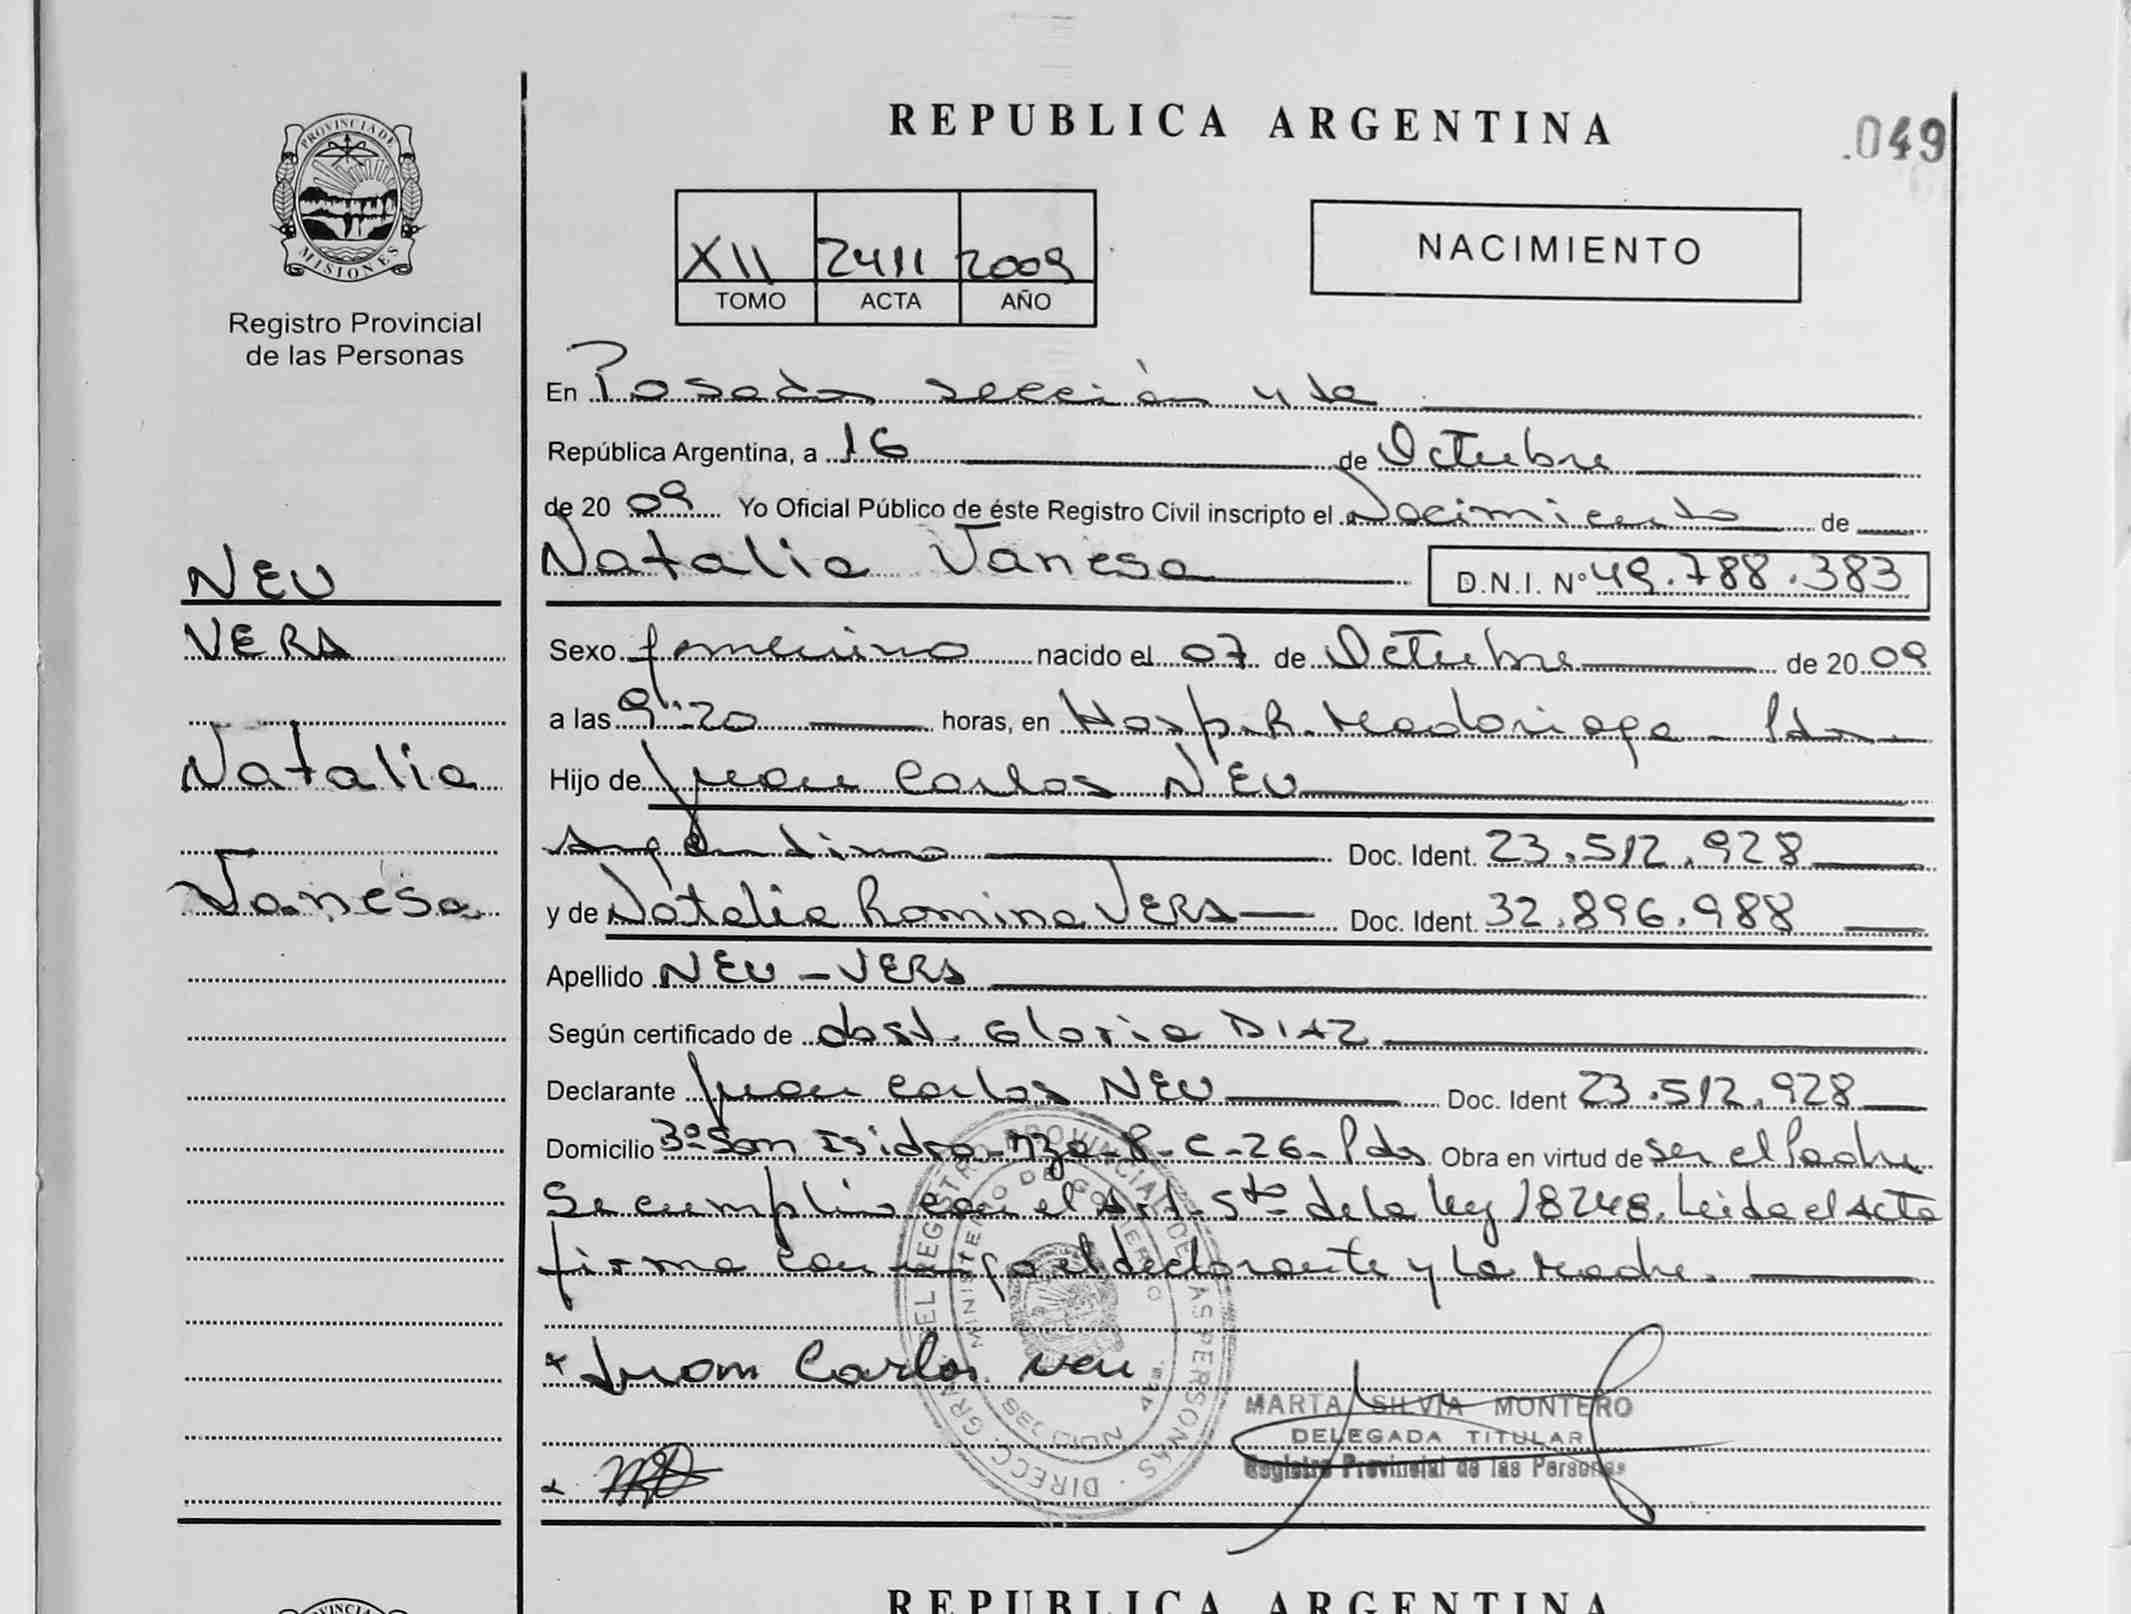 REPUBLICA ARGENTINA
.049
PROVINCIA DE
MISIONES
Registro Provincial
de las Personas
XII 2411 2009
TOMO ACTA AÑO
NACIMIENTO
En Posadas sección 4ta
República Argentina, a 16 de Octubre
de 2009 Yo Oficial Público de éste Registro Civil inscripto el Nacimiento de
Natalia Vanesa D.N.I. Nº 49.788.383
NEU
VERA
Natalia
Vanesa
Sexo femenino nacido el 07 de Octubre de 2009
a las 9:20 horas, en Hosp. R. Madariaga - Pdas
Hijo de Juan Carlos NEU
Argentino Doc. Ident. 23.512.928
y de Natalia Romina VERA Doc. Ident. 32.896.988
Apellido NEU - VERA
Según certificado de obst. Gloria DIAZ
Declarante Juan Carlos NEU Doc. Ident 23.512.928
Domicilio Bº San Isidro - mza - R - C - 26 - Pdas Obra en virtud de ser el Padre
Se cumplió con el Art. 5to de la ley 18248. Leída el Acta
firma conmigo el declarante y la Madre.
x Juan Carlos neu
MARTA SILVIA MONTERO
DELEGADA TITULAR
Registro Provincial de las Personas
DIRECC. GRAL. DEL REGISTRO PROVINCIAL DE LAS PERSONAS
MINISTERIO DE GOBIERNO
REPUBLICA ARGENTINA